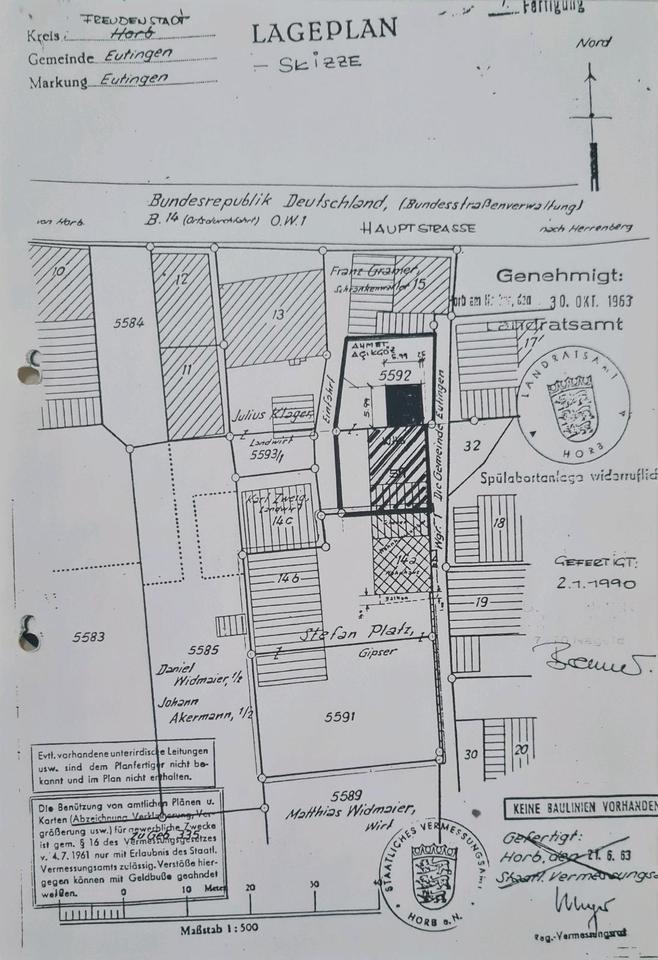 FREUDENSTADT
Kreis: Horb
Gemeinde Eutingen
Markung Eutingen
LAGEPLAN
- SKIZZE
Fertigung
Nord
Bundesrepublik Deutschland, (Bundesstraßenverwaltung)
von Horb
B.14 (Ortsdurchfahrt) O.W.1
HAUPTSTRASSE
nach Herrenberg
10
5584
12
11
13
Franz Gramer
15
Genehmigt:
30. OKT. 1963
Landratsamt
17
LANDRATSAMT
HORB
AHMET
AÇIKGÖZ
5.99
5592
Einfahrt
Julius Klager
Landwirt
5593/1
Die Gemeinde Eutingen
Wgr. 1
32
Spülabortanlage widerruflich
Karl Zweig,
Landwirt
14c
18
14a
14b
Balkon
GEFERTIGT:
2.1.1990
19
5583
5585
Stefan Platz,
Gipser
Daniel
Widmaier, 1/2
Johann
Akermann, 1/2
5591
30
20
Evtl. vorhandene unterirdische Leitungen
usw. sind dem Planfertiger nicht be-
kannt und im Plan nicht enthalten.
5589
Matthäus Widmaier,
Wirt
Die Benützung von amtlichen Plänen u.
Karten (Abzeichnung Verkleinerung, Ver-
größerung usw.) für gewerbliche Zwecke
ist gem. § 16 des Vermessungsgesetzes
v. 4.7.1961 nur mit Erlaubnis des Staatl.
Vermessungsamts zulässig. Verstöße hier-
gegen können mit Geldbuße geahndet
weißen.
zu Geb. 335
KEINE BAULINIEN VORHANDEN
Gefertigt:
Horb, den 21. 6. 63
Staatl. Vermessungsa
Reg.-Vermessungsrat
STAATLICHES VERMESSUNGSAMT
HORB a. N.
0 10 Meter 20 30 40
Maßstab 1:500